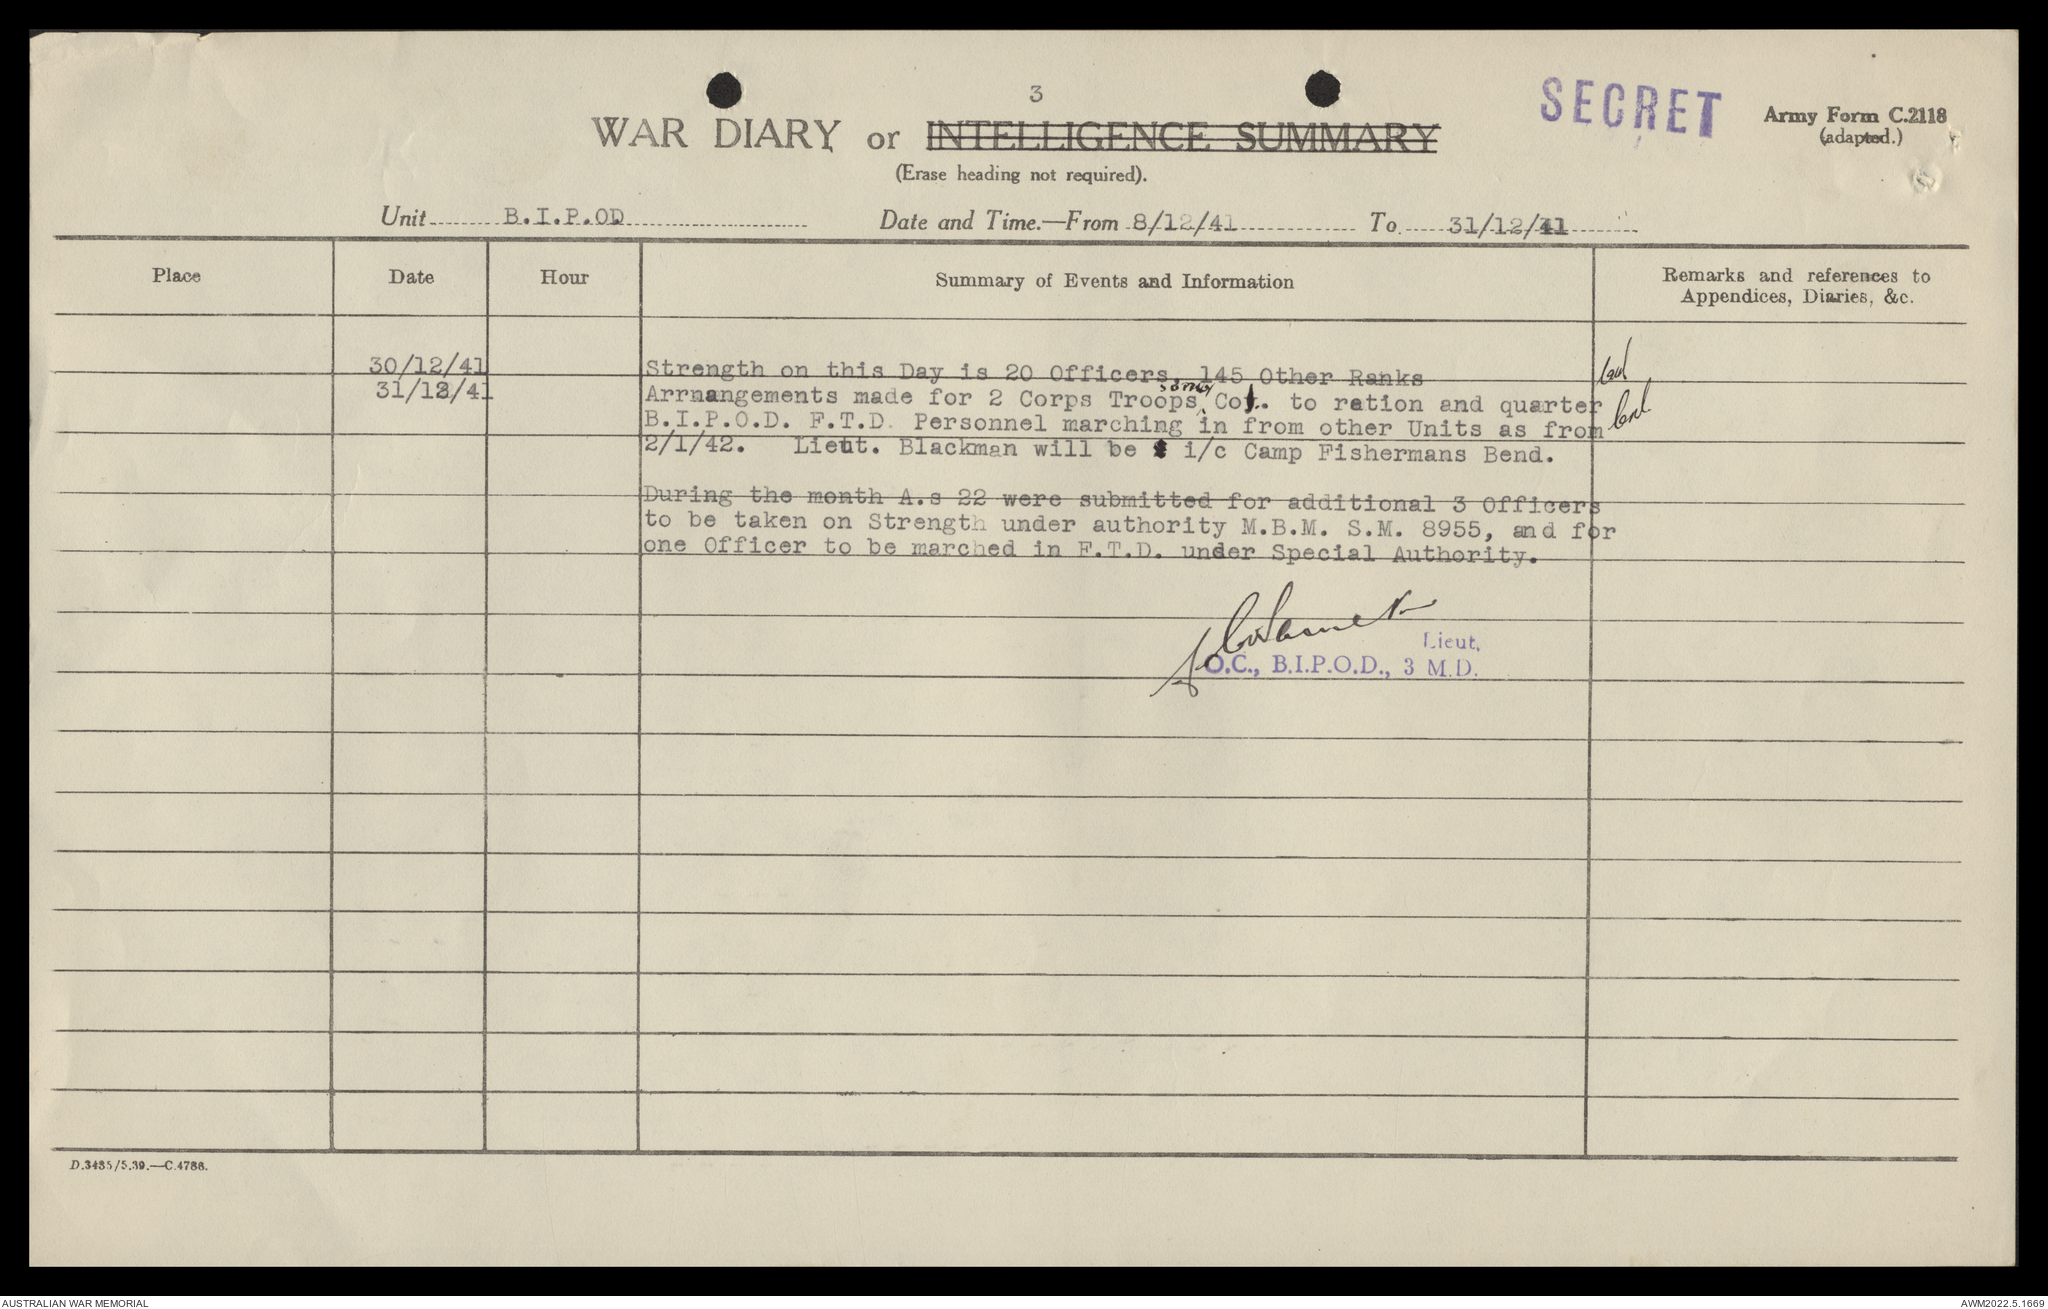 3
SECRET
Army Form C.2118
(adapted.)
WAR DIARY or INTELLIGENCE SUMMARY
(Erase heading not required).
Unit B.I.P.OD Date and Time.—From 8/12/41 To 31/12/41
Place Date Hour Summary of Events and Information Remarks and references to
Appendices, Diaries, &c.
30/12/41 Strength on this Day is 20 Officers, 145 Other Ranks
31/12/41 Arrnangements made for 2 Corps Troops, Co. to ration and quarter
B.I.P.O.D. F.T.D. Personnel marching in from other Units as from
2/1/42. Lieut. Blackman will be i/c Camp Fishermans Bend.
During the month A.s 22 were submitted for additional 3 Officers
to be taken on Strength under authority M.B.M. S.M. 8955, and for
one Officer to be marched in F.T.D. under Special Authority.
Lieut,
O.C., B.I.P.O.D., 3 M.D.
D.3485/5.39.—C.4786.
AUSTRALIAN WAR MEMORIAL
AWM2022.5.1669